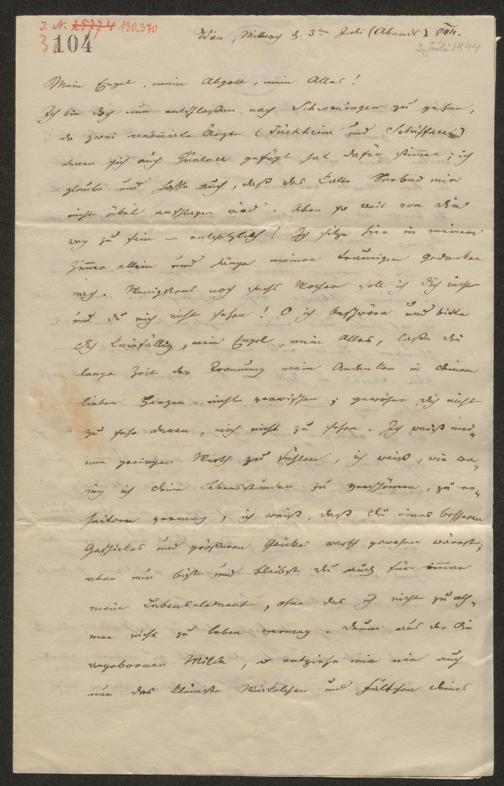 J. N. 130.370
104
Wien, Mittwoch d. 3ten Juli (Abends) 844.
3. Juli 1844
Mein Engel, mein Abgott, mein Alles!
Ich bin doch nun entschloßen nach zu gehen,
da zwei renomirte Ärzte (Türkheim und
denen sich auch gefügt hat dafür stimmen; ich
glaube und hoffe auch, daß das kalte Seebad mir
nicht übel anschlagen wird. Aber so weit von Dir
weg zu sein – entsetzlich! Ich sitze hier in meinem
Zimmer allein und hänge meinen traurigen Gedanken
nach. Wenigstens noch sechs Wochen soll ich Dich nicht
und du mich nicht sehen! O ich beschwöre und bitte
Dich kniefällig, mein Engel, mein Alles, laße die
lange Zeit der Trennung mein Andenken in deinem
lieben Herzen nicht verwischen; gewöhne dich nicht
zu sehr daran, mich nicht zu sehen. Ich weiß mei-
nen geringen Werth zu fühlen, ich weiß, wie we-
nig ich deine Lebensstunden zu verschönern, zu er-
heitern vermag; ich weiß, daß du eines besseren
Geschickes und größeren Glückes werth gewesen wärest;
aber nur bist und bleibst du auch für immer
mein Lebenselement, ohne das ich nicht zu ath-
men nicht zu leben vermag. Darum aus der Dir
angeborenen Milde, o entziehe mir nie auch
nur das kleinste Winkelchen und Fältchen deines